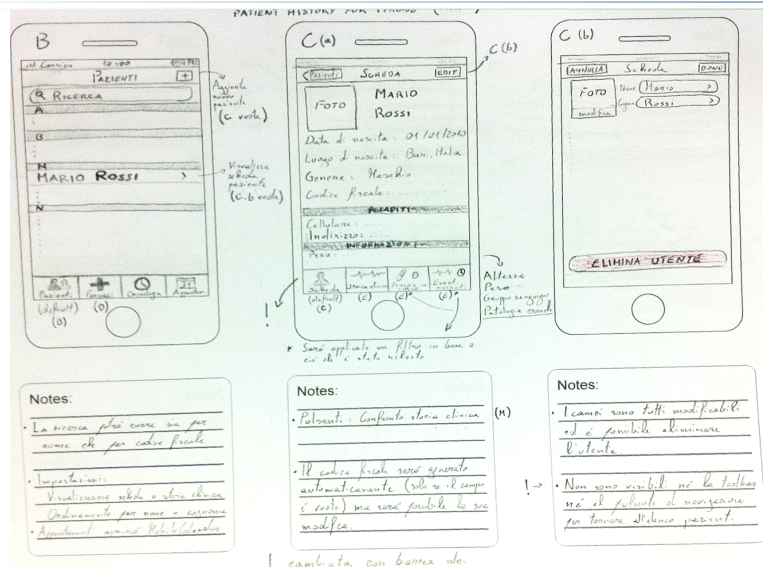 PATIENT HISTORY FOR IPHONE
B
Carrier 10:100
PAZIENTI +
RICERCA
A
B
M
MARIO ROSSI >
N
Pazienti
Farmaci
Cronologia
(default)
(B)
(D)
Aggiunta
nuovo
paziente
(C vuota)
Visualizza
scheda
paziente
(C.b vuota)
C (a)
Pazienti SCHEDA EDIT
C (b)
FOTO
MARIO
ROSSI
Data di nascita: 01/01/2010
Luogo di nascita: Bari, Italia
Genere: Maschio
Codice fiscale:
RECAPITI
Cellulare:
Indirizzo:
INFORMAZIONI
Peso:
Scheda
(default)
(C)
(E)
(E)*
(E)*
!
Altezza
Peso
Gruppo sanguigno
Patologie
* Sarà applicato un filtro in base a
ciò che è stato richiesto
C (b)
ANNULLA Scheda DONE
FOTO
modifica
Nome Mario >
Rossi >
ELIMINA UTENTE
Notes:
• La ricerca potrà essere sia per
nome che per codice fiscale
• Impostazioni:
Visualizzazione scheda o storia clinica
Ordinamento per nome o cognome
Notes:
• Pulsanti: Confronto storia clinica (M)
• Il codice fiscale sarà generato
automaticamente (solo se il campo
è vuoto) ma sarà possibile la sua
modifica.
Notes:
• I campi sono tutti modificabili
ed è possibile eliminare
l'utente
! → • Non sono visibili né la toolbar
né il pulsante di navigazione
per tornare all'elenco pazienti.
! cambiata con barra dei